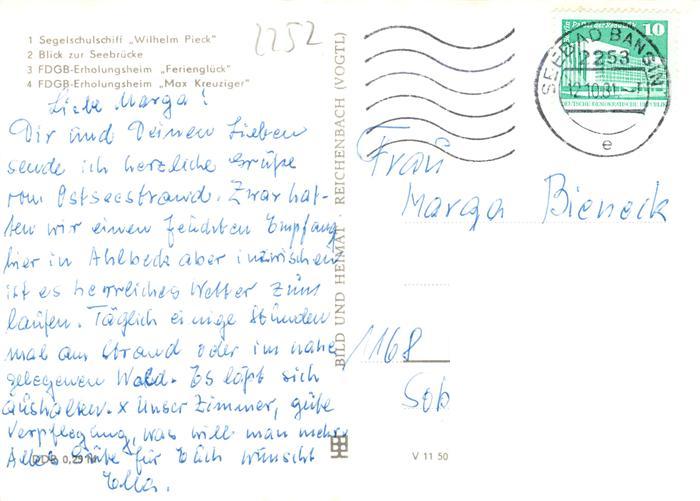 1 Segelschulschiff „Wilhelm Pieck"
2 Blick zur Seebrücke
3 FDGB-Erholungsheim „Ferienglück"
4 FDGB-Erholungsheim „Max Kreuziger"
2252
Liebe Marga!
Dir und Deinen Lieben
sende ich herzliche Grüße
vom Ostseestrand. Zwar hat-
ten wir einen feuchten Empfang
hier in Ahlbeck aber inzwischen
ist es herrliches Wetter zum
laufen. Täglich einige Stunden
mal am Strand oder im nahe
gelegenen Wald. Es läßt sich
aushalten. x Unser Zimmer, gute
Verpflegung, was will man mehr
Alles Gute für Euch wünscht
Ella.
BILD UND HEIMAT REICHENBACH (VOGTL)
V 11 50
10
DEUTSCHE DEMOKRATISCHE REPUBLIK
SEEBAD BANSIN
2253
12.10.81
e
Frau
Marga Bieneck
1168
Sob